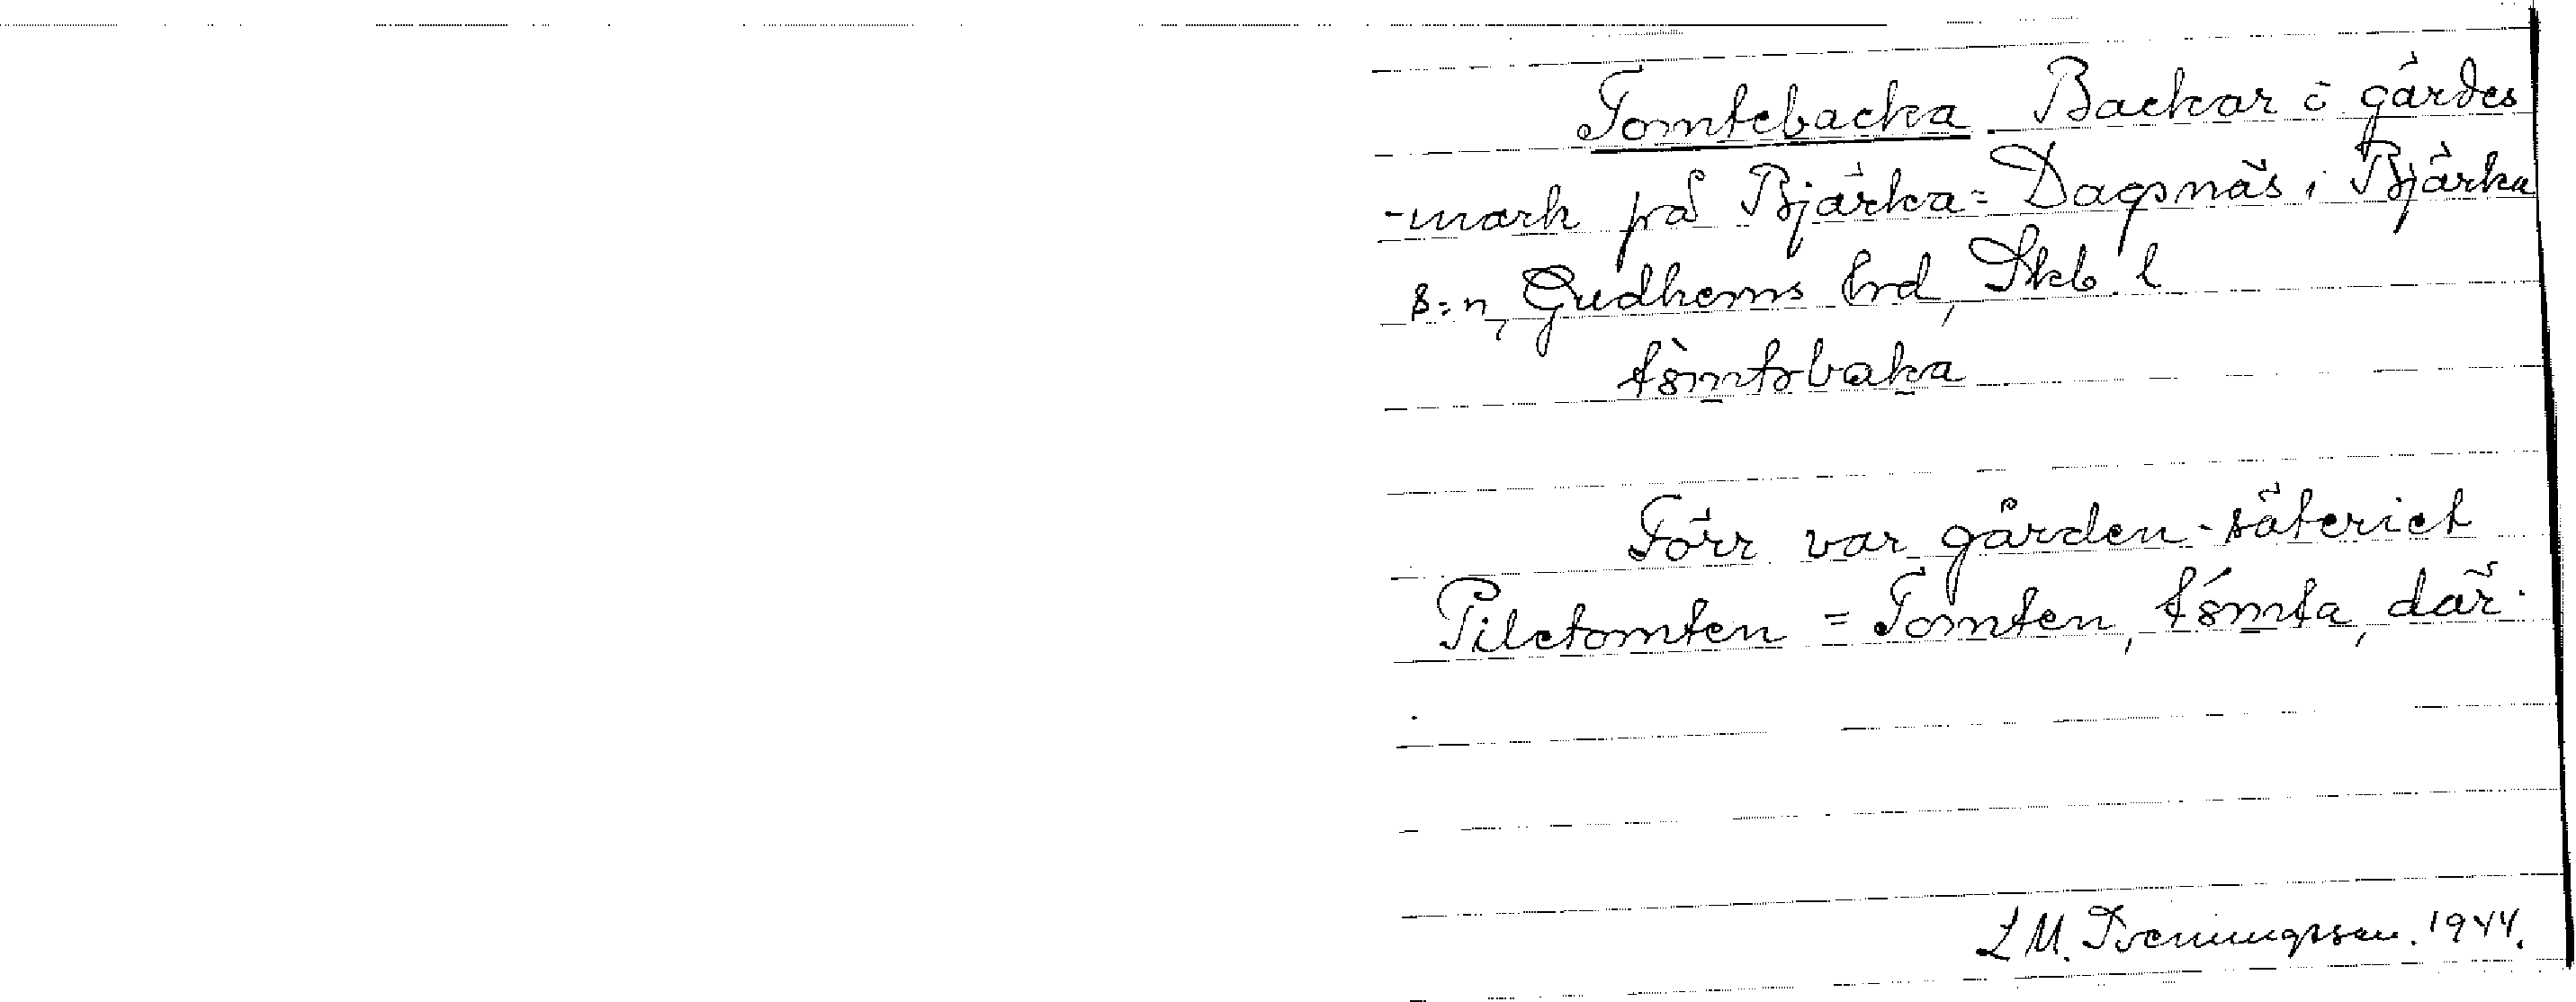 Tomtebacka Backar i gärdes
-mark på Bjärka=Dagsnäs i Bjärka
s:n, Gudhems hrd, Skb. l
Förr var gården-säteriet
Piletomten = Tomten, där.
L M. Svenungsson. 1944.